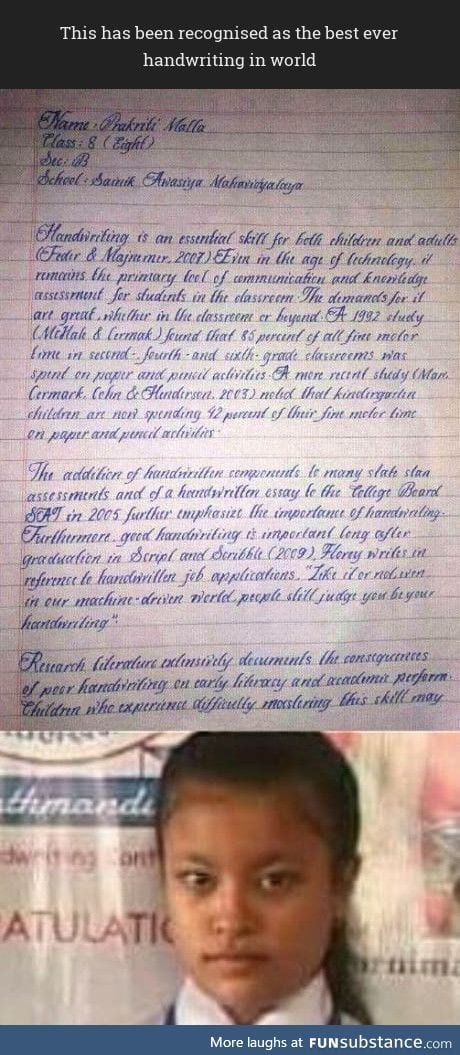 This has been recognised as the best ever
handwriting in world
Name: Prakriti Malla
Class: 8 (Eight)
Sec: B
School: Sainik Awasiya Mahavidyalaya
Handwriting is an essential skill for both children and adults
(Feder & Majnemer, 2007) Even in the age of technology, it
remains the primary tool of communication and knowledge
assessment for students in the classroom. The demands for it
are great, whether in the classroom or beyond. A 1992 study
(McHale & Cermak) found that 85 percent of all fine motor
time in second-, fourth- and sixth-grade classrooms was
spent on paper and pencil activities. A more recent study (Marr,
Cermark, Cohn & Henderson, 2003) noted that kindirgarten
children are now spending 42 percent of their fine motor time
on paper and pencil activities.
The addition of handwritten components to many state stan
assessments and of a handwritten essay to the College Board
SAT in 2005 further emphasize the importance of handwriting.
Furthermore, good handwriting is important long after
graduation in Script and Scribble (2009), Florey writes in
reference to handwritten job applications, "Like it or not, even
in our machine-driven world, people still judge you by your
handwriting".
Research literature extensively documents the consequences
of poor handwriting on early literacy and academic perform.
Children who experience difficulty mastering this skill may
thmandu
dwriting Cont
ATULATIO
More laughs at FUNsubstance.com